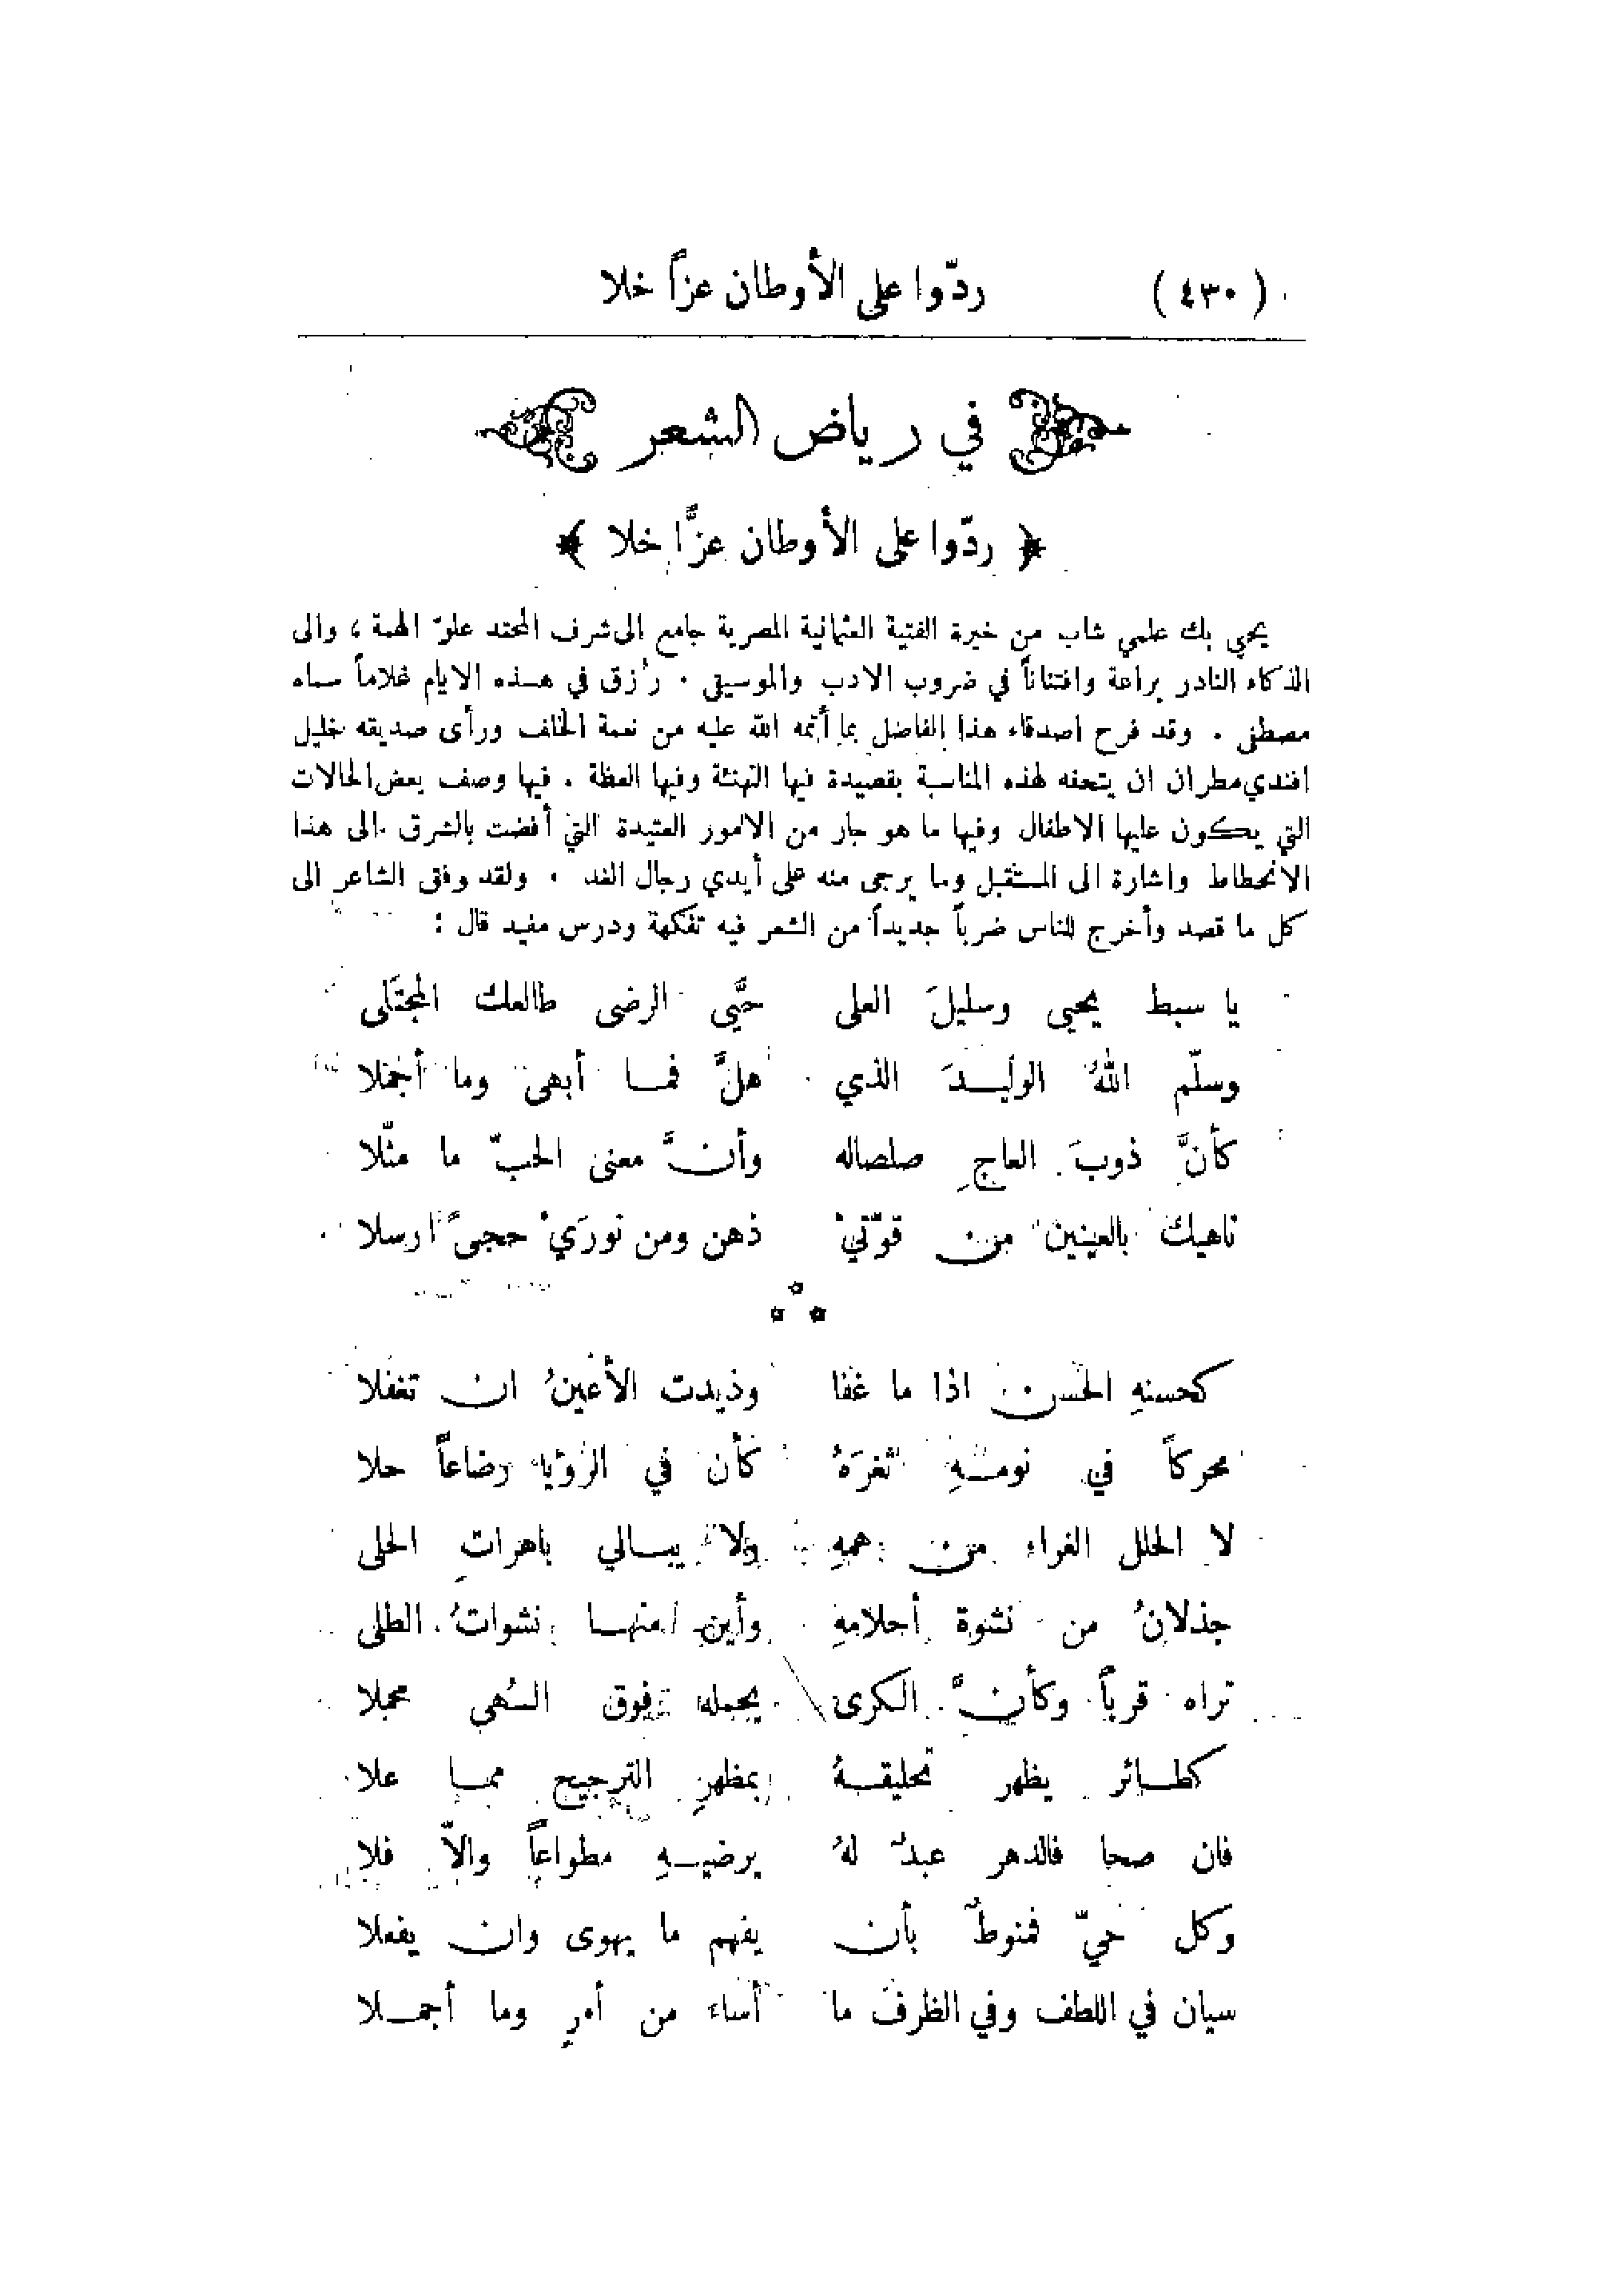 (٤٣٠) ردّوا على الأوطان عزاً خلا
في رياض الشعر
﴿ ردّوا على الأوطان عزًّا خلا ﴾
يحيى بك علمي شاب من خيرة الفتية العثمانية المصرية جامع الى شرف المحتد علوّ الهمة ، والى
الذكاء النادر براعة وافتناناً في ضروب الادب والموسيقى . رُزق في هذه الايام غلاماً سماه
مصطفى . وقد فرح اصدقاء هذا الفاضل بما أتمه الله عليه من نعمة الخلف ورأى صديقه خليل
افندي مطران ان يتحفه لهذه المناسبة بقصيدة فيها التهنئة وفيها العظة . فيها وصف بعض الحالات
التي يكون عليها الاطفال وفيها ما هو جار من الامور العتيدة التي أفضت بالشرق الى هذا
الانحطاط واشارة الى المستقبل وما يرجى منه على أيدي رجال الغد . ولقد وفق الشاعر الى
كل ما قصد وأخرج للناس ضرباً جديداً من الشعر فيه تفكهة ودرس مفيد قال :
يا سبط يحيى وسليلَ العلى حيَّى الرضى طالعك المجتَلى
وسلّم اللهُ الوليدَ الذي هلَّ فما أبهى وما أجملا
كأنَّ ذوبَ العاجِ صلصاله وأنَّ معنى الحبّ ما مثّلا
ناهيك بالعينين من قوّتيْ ذهن ومن نورَيْ حجىً ارسلا
كحسنهِ الحسن اذا ما غفا وذيدت الأعينُ ان تغفلا
محركاً في نومهِ ثغرَهُ كأن في الرؤيا رضاعاً حلا
لا الحلل الغراء من همهِ ولا يبالي باهراتِ الحلى
جذلانُ من نشوة أحلامهِ وأين منها نشواتُ الطلى
تراه قرباً وكأنَّ الكرى يجعله فوق السُهى محملا
كطائر يظهر تحليقهُ بمظهرِ الترجيح مما علا
فان صحا فالدهر عبدٌ لهُ يرضيهِ مطواعاً والاّ فلا
وكل حيّ فمنوطٌ بأن يفهم ما يهوى وان يفعلا
سيان في اللطف وفي الظرف ما أساء من أمرٍ وما أجملا